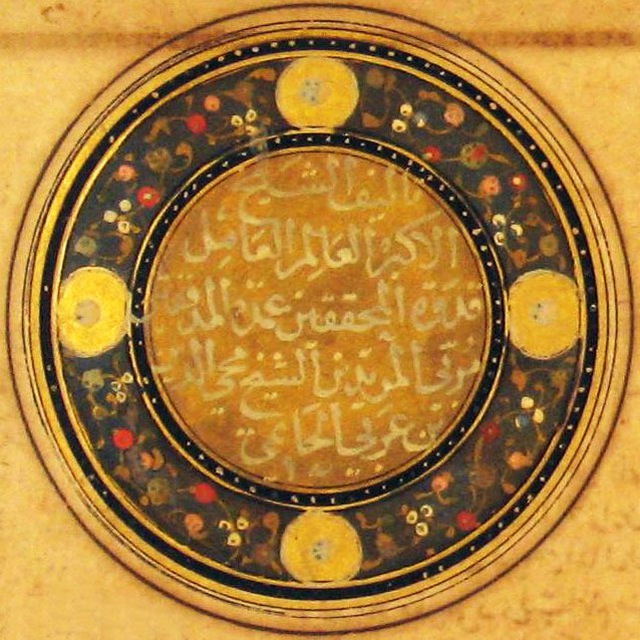 تأليف الشيخ
الاكبر العالم الفاضل
قدوة المحققين عمدة المدققين
مربي المريدين الشيخ محيي الدين
بن عربي الحاتمي